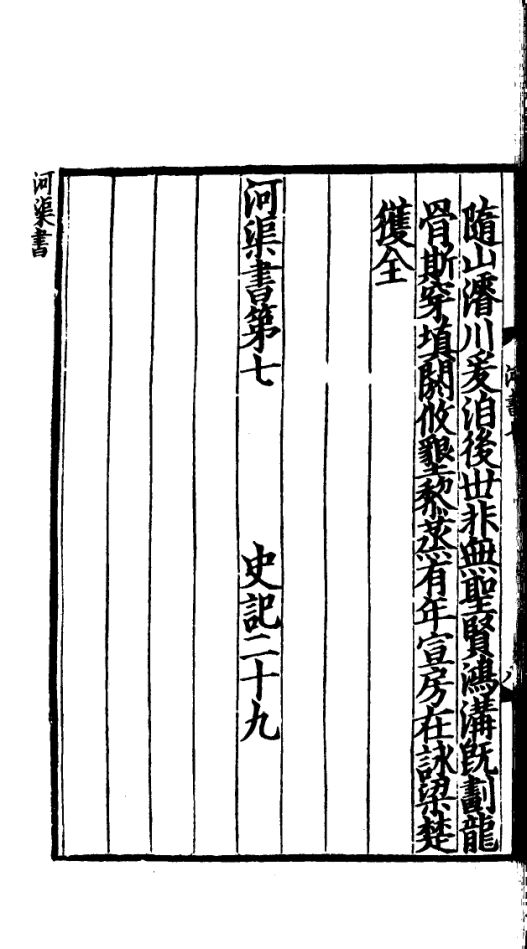 隨山濬川爰洎後丗非無聖賢鴻溝旣劃龍
骨斯穿填閼攸墾黎蒸有年宣房在詠梁楚
獲全
河渠書第七 史記二十九
河渠書